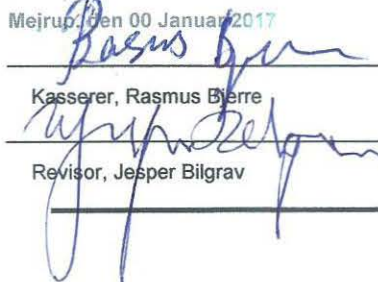 Mejrup, den 00 Januar 2017
Rasus
Kasserer, Rasmus Bjerre
Revisor, Jesper Bilgrav